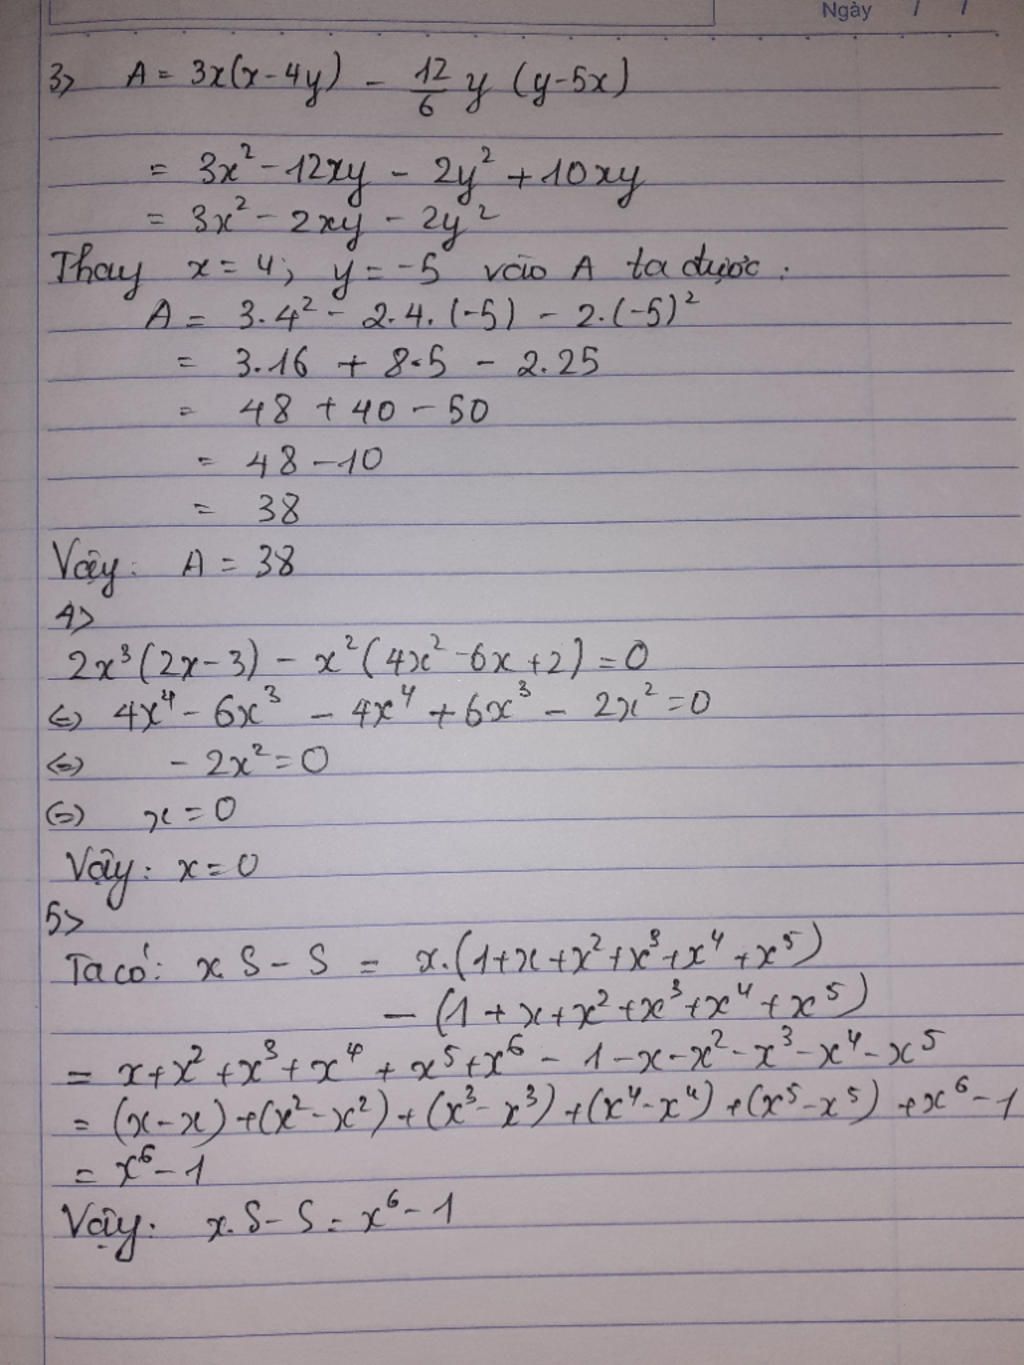 Ngày / /
3> A = 3x(x-4y) - 12/6 y (y-5x)
= 3x² - 12xy - 2y² + 10xy
= 3x² - 2xy - 2y²
Thay x = 4; y = -5 vào A ta được:
A = 3.4² - 2.4.(-5) - 2.(-5)²
= 3.16 + 8.5 - 2.25
= 48 + 40 - 50
= 48 - 10
= 38
Vậy: A = 38
4>
2x³(2x-3) - x²(4x² - 6x + 2) = 0
⇔ 4x⁴ - 6x³ - 4x⁴ + 6x³ - 2x² = 0
⇔ - 2x² = 0
⇔ x = 0
Vậy: x = 0
5>
Ta có: x S - S = x.(1+x+x²+x³+x⁴+x⁵)
- (1+x+x²+x³+x⁴+x⁵)
= x+x²+x³+x⁴+x⁵+x⁶-1-x-x²-x³-x⁴-x⁵
= (x-x)+(x²-x²)+(x³-x³)+(x⁴-x⁴)+(x⁵-x⁵)+x⁶-1
= x⁶-1
Vậy: x.S - S = x⁶-1